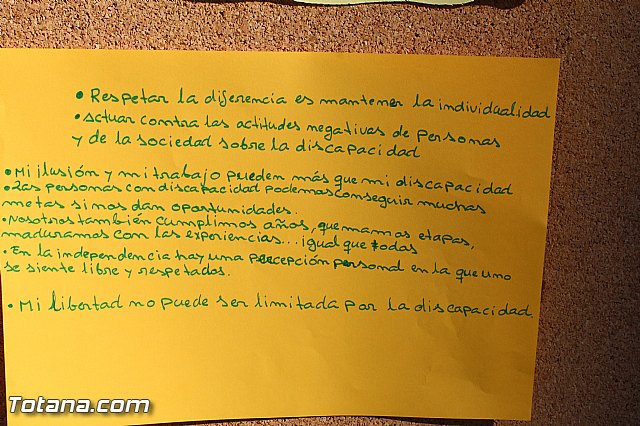 • Respetar la diferencia es mantener la individualidad
• Actuar contra las actitudes negativas de personas
y de la sociedad sobre la discapacidad
• Mi ilusión y mi trabajo pueden más que mi discapacidad
• Las personas con discapacidad podemos conseguir muchas
metas si nos dan oportunidades.
• Nosotros también cumplimos años, quemamos etapas,
maduramos con las experiencias... igual que todas
• En la independencia hay una percepción personal en la que uno
se siente libre y respetados.
• Mi libertad no puede ser limitada por la discapacidad.
Totana.com